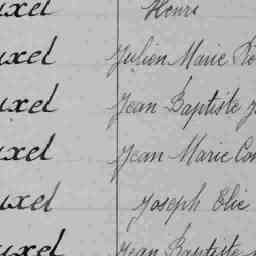 uxel Henri
uxel Julien Marie
uxel Jean Baptiste
uxel Jean Marie
uxel Joseph Elie
uxel Jean Baptiste